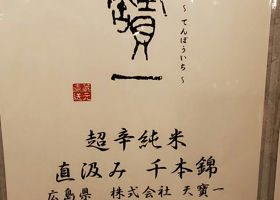 ～てんぽういち～
寳一
蔵元直送
超辛純米
直汲み 千本錦
広島県 株式会社 天寳一